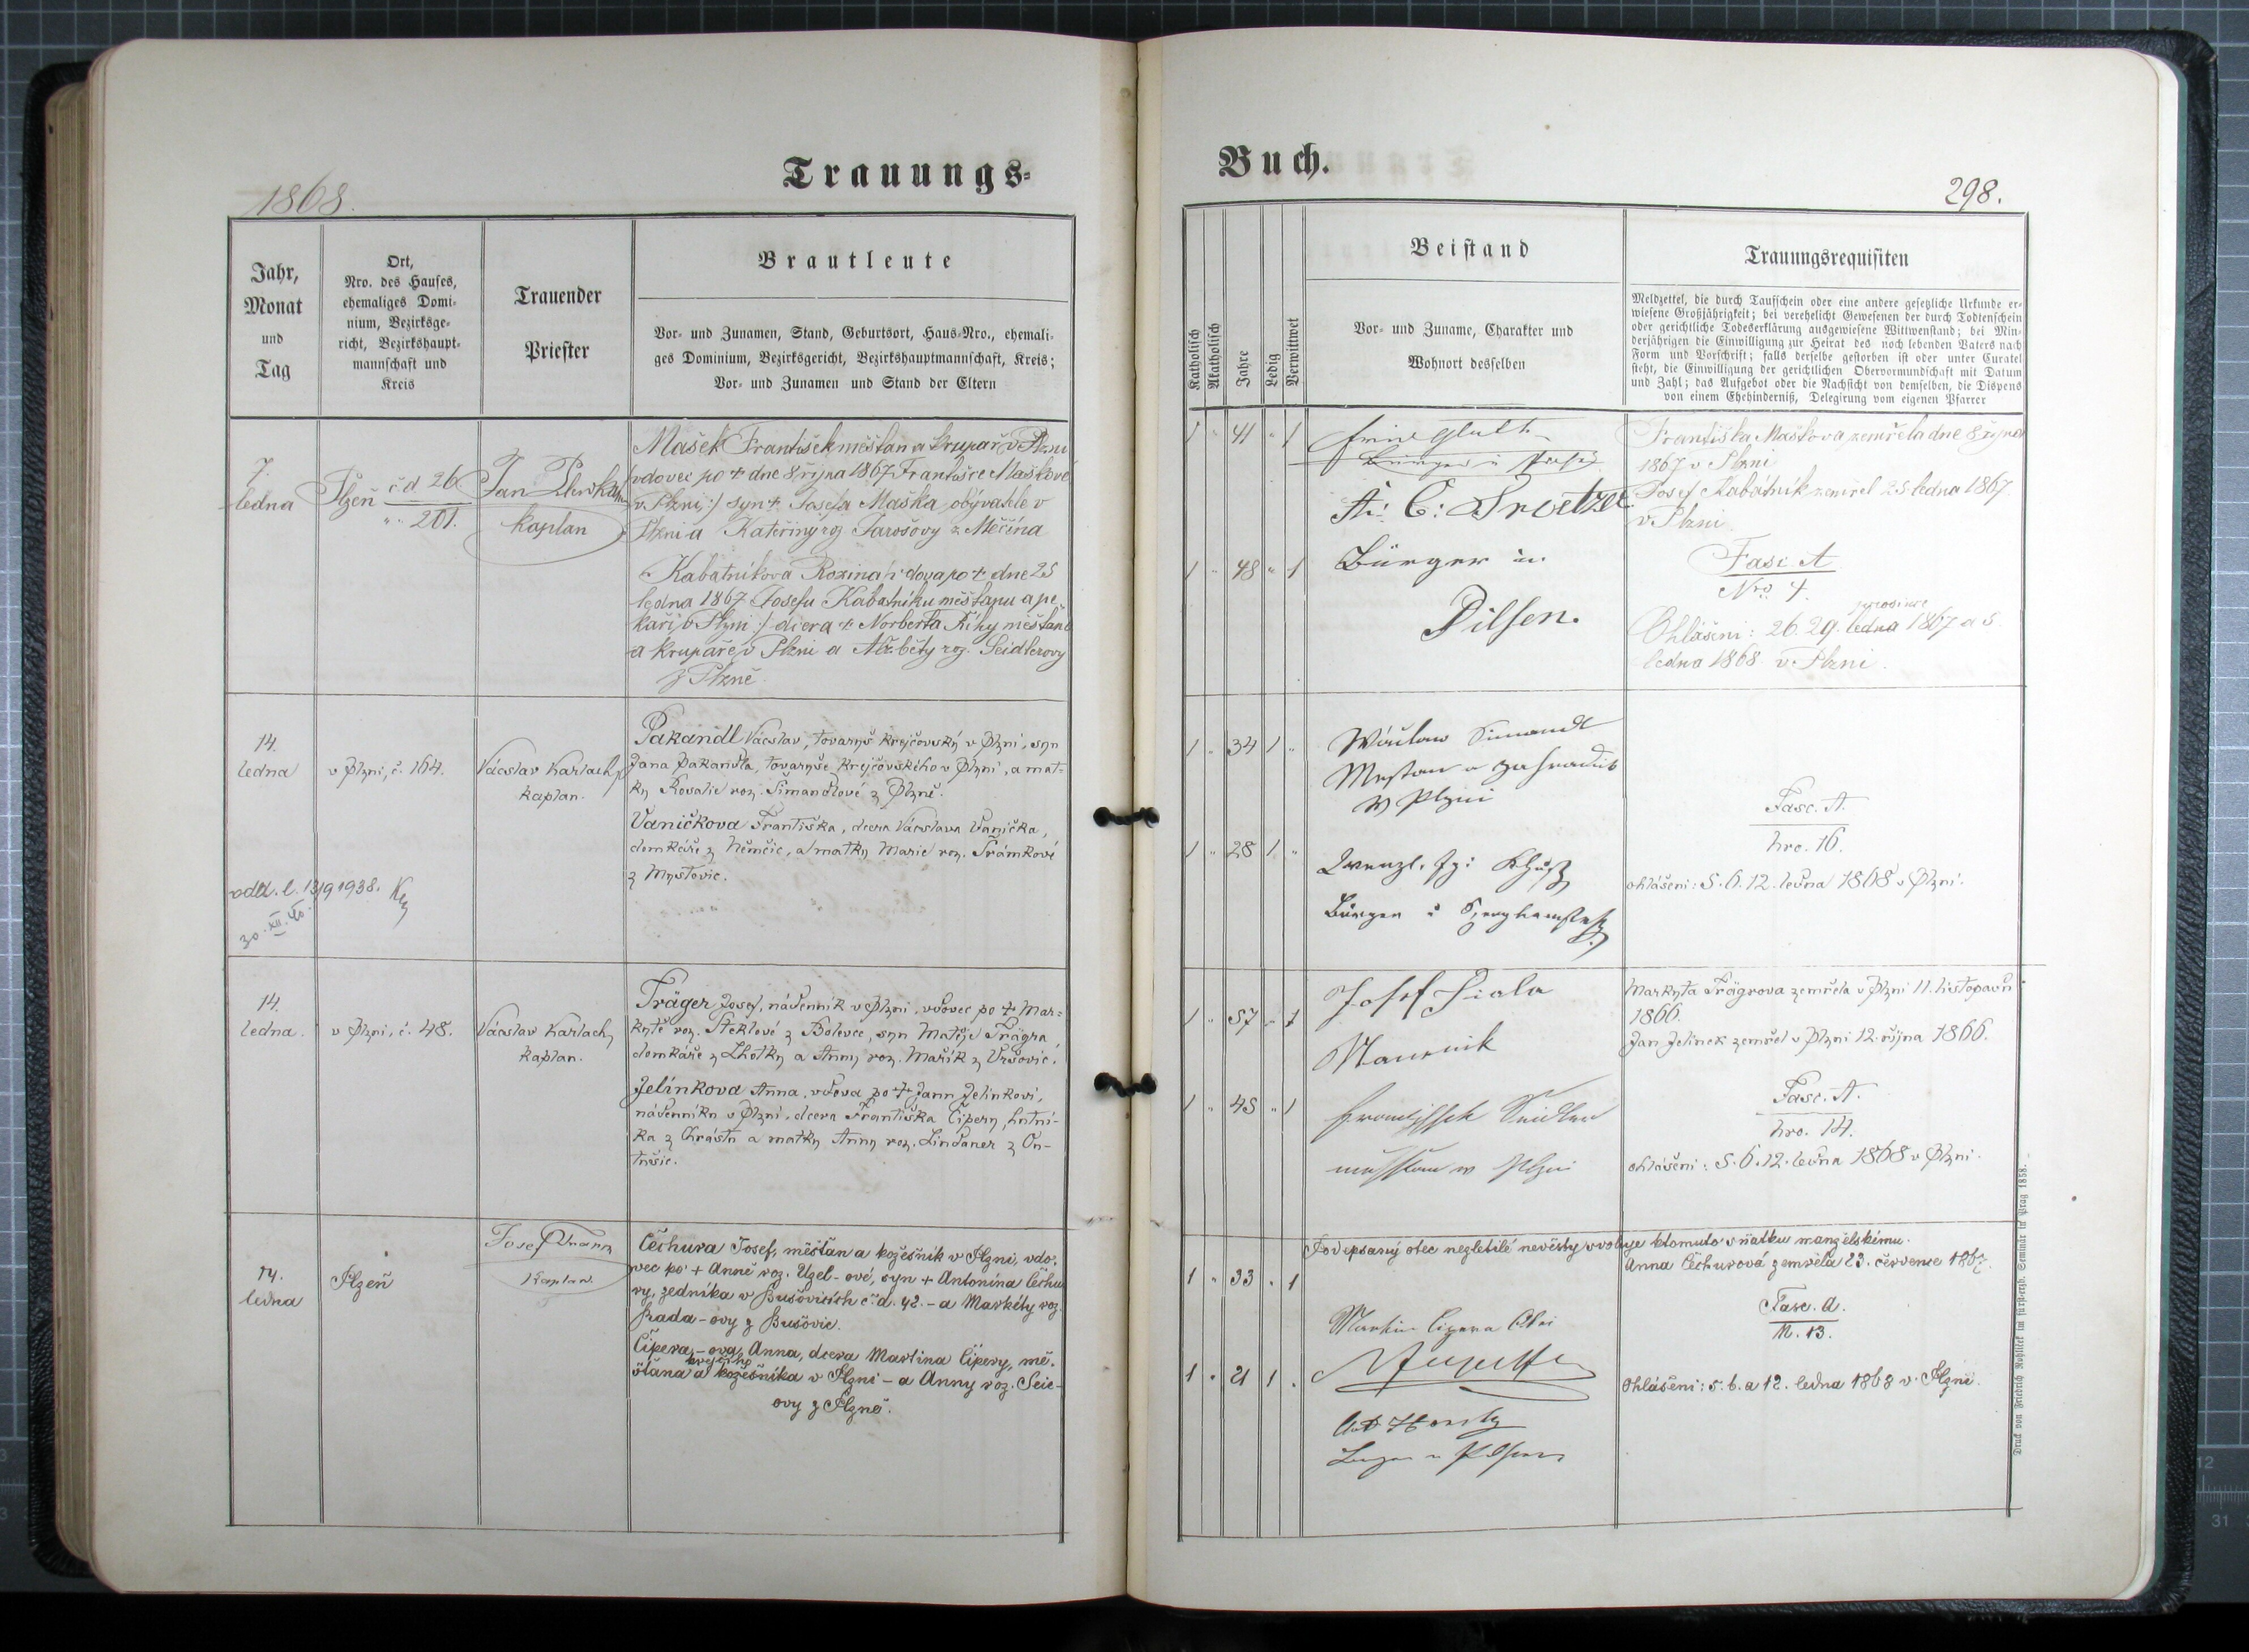 Trauungs-
1868.
Jahr,
Monat
und
Tag
Ort,
Nro. des Hauses,
ehemaliges Domi-
nium, Bezirksge-
richt, Bezirkshaupt-
mannschaft und
Kreis
Trauender
Priester
Brautleute
Vor- und Zunamen, Stand, Geburtsort, Haus-Nro., ehemali-
ges Dominium, Bezirksgericht, Bezirkshauptmannschaft, Kreis;
Vor- und Zunamen und Stand der Eltern
7.
ledna
Plzeň č d 26
201.
Jan
kaplan
Mašek František měšťan a krupař v Plzni
vdovec po + dne 8 října 1867 Františce Maškové
v Plzni :/ syn + Josefa Maška, obývatele v
Plzni a Kateřiny roz Jarošovy z Měčína
Kabátníkova Rozina /: vdova po + dne 25
ledna 1867 Josefu Kabátníku měšťanu a pe-
kaři v Plzni :/ dcera + Norberta Říhy měšťana
a krupaře v Plzni a Alžběty roz. Seidlerovy
z Plzně.
14.
ledna
v Plzni, č. 164.
Václav Karlach,
kaplan.
Pakandl Václav, tovaryš krejčovský v Plzni, syn
Jana Pakandla, tovaryše krejčovského v Plzni, a mat-
ky Rosalie roz. Šimandlové z Plzně.
Vaničkova Františka, dcera Václava Vanička,
domkáře z Němčic, a matky Marie roz. Šrámkové
z Myslovic.
odd. l. 13/9 1938.
30. XII. 40.
14.
ledna.
v Plzni, č. 48.
Václav Karlach,
kaplan.
Träger Josef, nádenník v Plzni, vdovec po + Mar-
kytě roz. Steklové z Bolevce, syn Matěje Trägra,
domkáře z Lhotky a Anny roz. Mařík z Vršovic.
Jelínkova Anna, vdova po + Janu Jelínkovi,
nádenníku v Plzni, dcera Františka Čipery, hutní-
ka z Chrástu a matky Anny roz. Lindauer z On-
14.
ledna
Plzeň
Josef
Kaplan.
Čechura Josef, měšťan a kožešník v Plzni, vdo-
vec po + Anně roz. Uzel-ové, syn + Antonína Čechu
ry, zedníka v Bušovicích č. d. 42. - a Markéty roz.
Rada-ovy z Bušovic.
Čipera-ova Anna, dcera Martina Čipery, mě-
krejčího
šťana a kožešníka v Plzni - a Anny roz. Seic-
ovy z Plzně.
Buch.
298.
Katholisch
Akatholisch
Jahre
Ledig
Verwittwet
Beistand
Vor- und Zuname, Charakter und
Wohnort desselben
Trauungsrequisiten
Meldzettel, die durch Taufschein oder eine andere gesetzliche Urkunde er-
wiesene Großjährigkeit; bei verehelicht Gewesenen der durch Todtenschein
oder gerichtliche Todeserklärung ausgewiesene Wittwenstand; bei Min-
derjährigen die Einwilligung zur Heirat des noch lebenden Vaters nach
Form und Vorschrift; falls derselbe gestorben ist oder unter Curatel
steht, die Einwilligung der gerichtlichen Obervormundschaft mit Datum
und Zahl; das Aufgebot oder die Nachsicht von demselben, die Dispens
von einem Ehehinderniß, Delegirung vom eigenen Pfarrer
1 " 41 " 1
Bürger in
Pilsen.
1 " 48 " 1
Františka Maškova zemřela dne 8 října
1867 v Plzni
Josef Kabátník zemřel 25 ledna 1867
v Plzni
Fasc A
Nro 4.
prosince
Ohlášeni: 26. 29. ledna 1867 a 5
ledna 1868 v Plzni.
1 " 34 1 "
Mestan a zahradnik
w Plzni
1 " 28 1 "
Fasc. A.
Nro. 16.
ohlášeni: 5. 6. 12. ledna 1868 v Plzni.
1 " 57 " 1
Josef Fiala
1 " 45 " 1
Markyta Trägrova zemřela v Plzni 11. listopadu
1866.
Jan Jelínek zemřel v Plzni 12. října 1866.
Fasc. A.
Nro. 14.
ohlášeni: 5. 6. 12. ledna 1868 v Plzni.
Podepsaný otec nezletilé nevěsty svoluje k tomuto sňatku manželskému.
Anna Čechurová zemřela 23. července 1867.
1 " 33 " 1
Martin Cipera
1 " 21 1 "
Fasc. A.
N. 13.
Ohlášeni: 5. 6. a 12. ledna 1868 v Plzni.
Druck von Friedrich Rohlicek im fürsterzb. Seminär in Prag 1858.